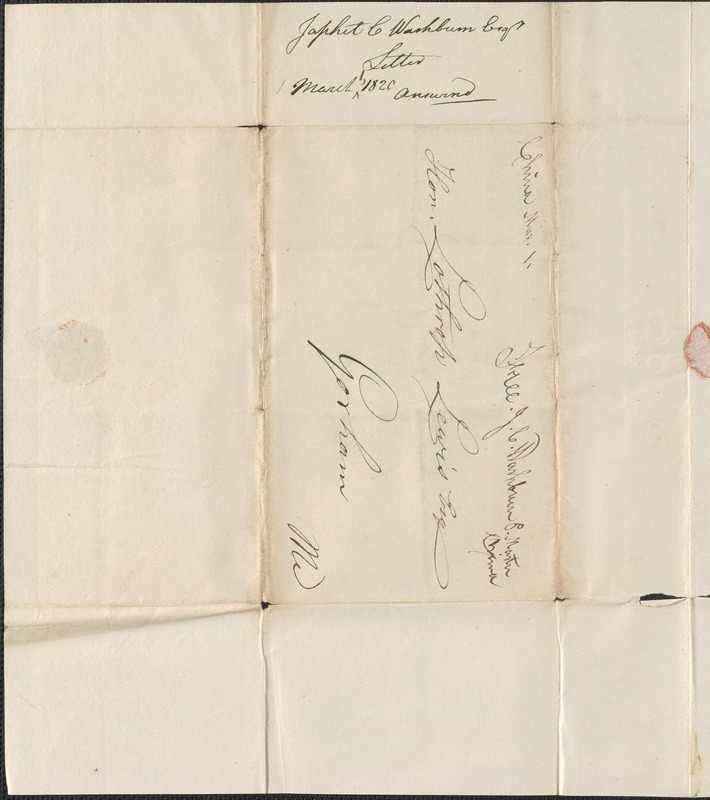 Japhet C Washburn Esqr
Letter
March 1820
answered
China Mar. 11
Free. J. C. Washburn P. Master
China
Hon. Lothrop Lewis Esq
Gorham
Me